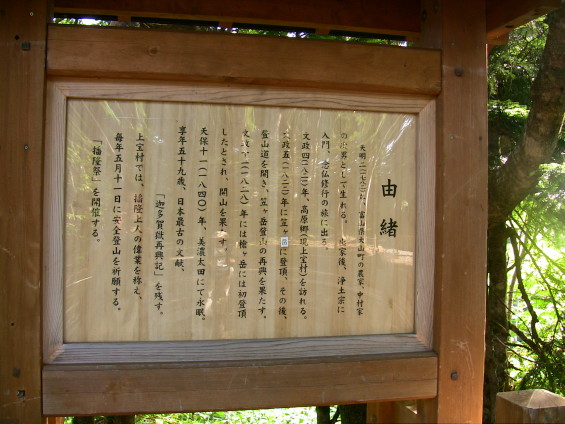 由緒
天明二(一七八二)年、富山県大山町の農家、中村家
の次男として生れる。出家後、浄土宗に
入門、念仏修行の旅に出る。
文政四(一八二一)年、高原郷(現上宝村)を訪れる。
文政五(一八二二)年に笠ヶ岳に登頂、その後、
登山道を開き、笠ヶ岳登山の再興を果たす。
文政十一(一八二八)年には槍ヶ岳には初登頂
したとされ、開山を果す。
天保十一(一八四〇)年、美濃太田にて永眠。
享年五十九歳、日本最古の文献、
「迦多賀嶽再興記」を残す。
上宝村では、播隆上人の偉業を称え、
毎年五月十一日に安全登山を祈願する。
「播隆祭」を開催する。